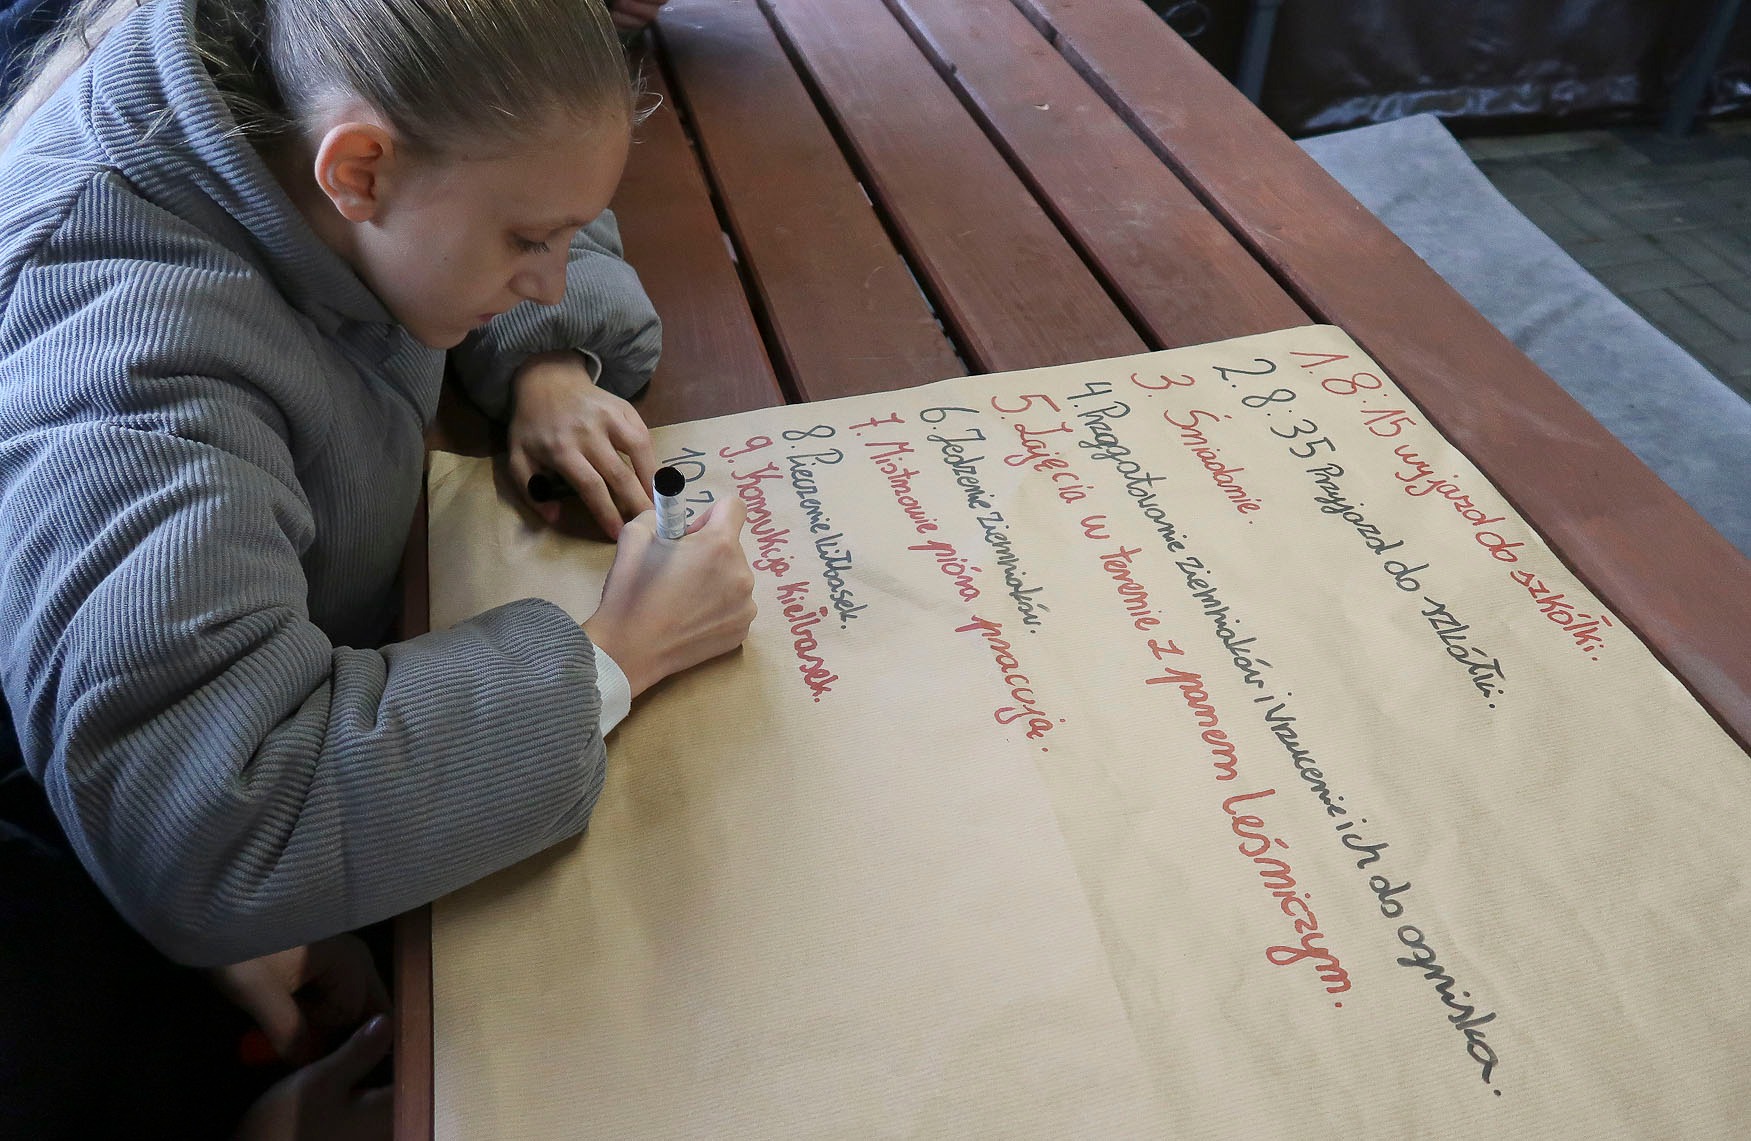 1. 8:15 wyjazd do szkółki.
2. 8:35 Przyjazd do szkółki.
3. Śniadanie.
4. Przygotowanie ziemniaków i wrzucenie ich do ogniska.
5. Zajęcia w terenie z panem leśniczym.
6. Jedzenie ziemniaków.
7. Mistrzowie pióra pracują.
8. Pieczenie kiłbasek.
9. Konsukcja kiełbasek.
10.